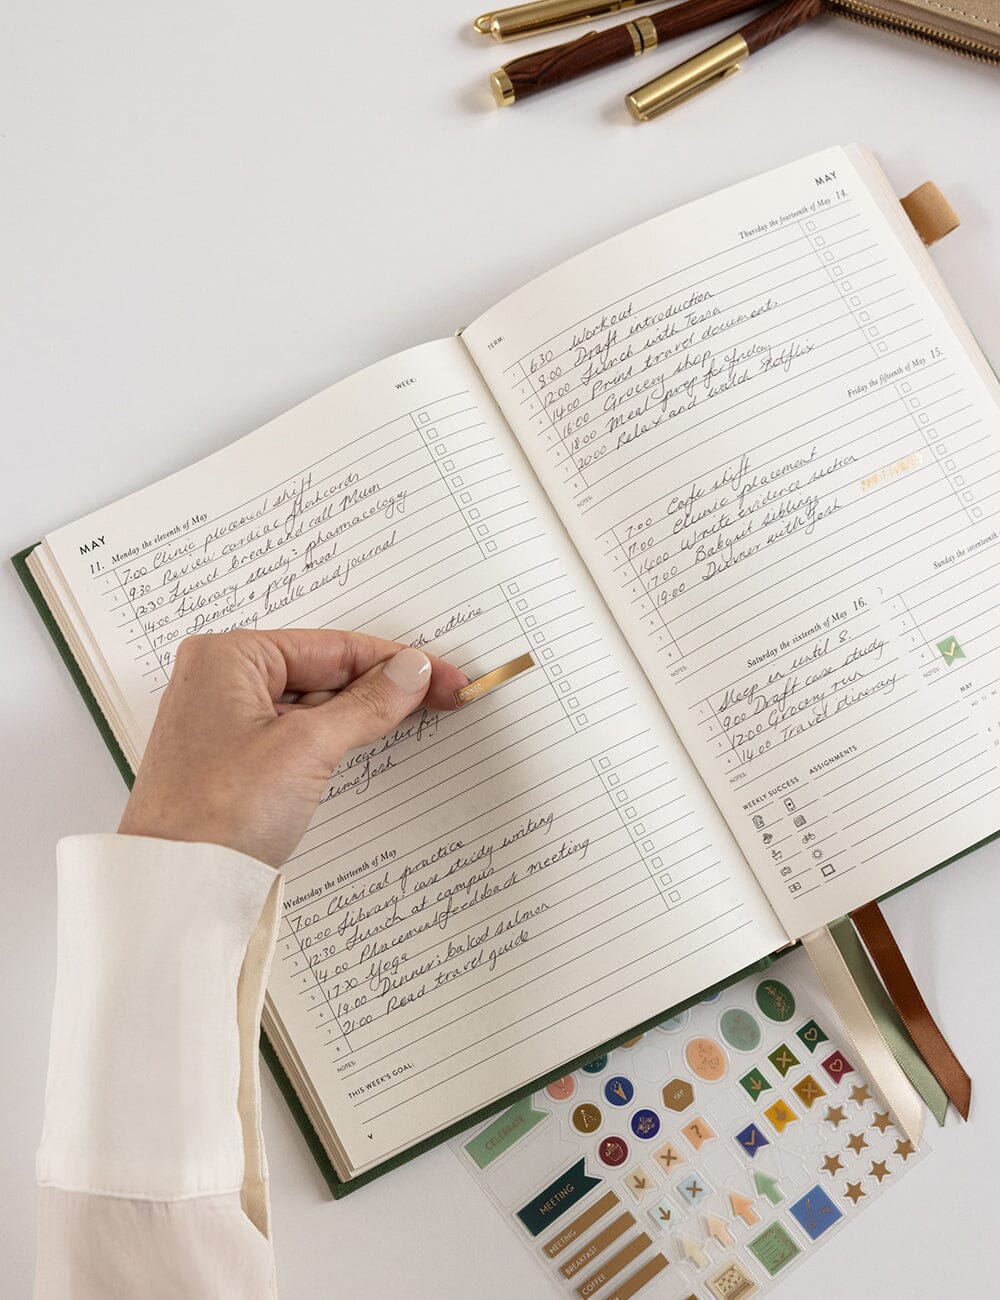 WEEK:
MAY
11. Monday the eleventh of May
1 7:00 Clinic placement shift
2 9:30 Review cardiac flashcards
3 12:30 Lunch break and call Mum
4 14:00 Library study: pharmacology
5 17:00 Dinner & prep meal
6 19: Evening walk and journal
outline
DINNER
Wednesday the thirteenth of May
1 7:00 Clinical practice
2 10:00 Library: case study writing
3 12:30 Lunch at campus
4 14:00 Placement feedback meeting
5 17:30 Yoga
6 19:00 Dinner: baked salmon
7 21:00 Read travel guide
8
NOTES:
THIS WEEK'S GOAL:
V
MAY
Thursday the fourteenth of May 14.
TERM:
1 6:30 Workout
2 8:00 Draft introduction
3 12:00 Lunch with Tessa
4 14:00 Print travel documents
5 16:00 Grocery shop
6 18:00 Meal prep for Friday
7 20:00 Relax and watch Netflix
8
NOTES:
Friday the fifteenth of May 15.
1 7:00 Cafe shift
2 11:00 Clinic placement
3 14:00 Write evidence section
4 17:00 Babysit siblings
5 19:00 Dinner with Josh
6
7
8
NOTES:
Saturday the sixteenth of May 16.
1 Sleep in until 8.
2 9:00 Draft case study
3 12:00 Grocery run
4 14:00 Travel itinerary
NOTES:
Sunday the seventeenth
1
2
3
4
NOTES:
WEEKLY SUCCESS
ASSIGNMENTS
MAY
CELEBRATE
YAY
?
MEETING
MEETING
BREAKFAST
COFFEE